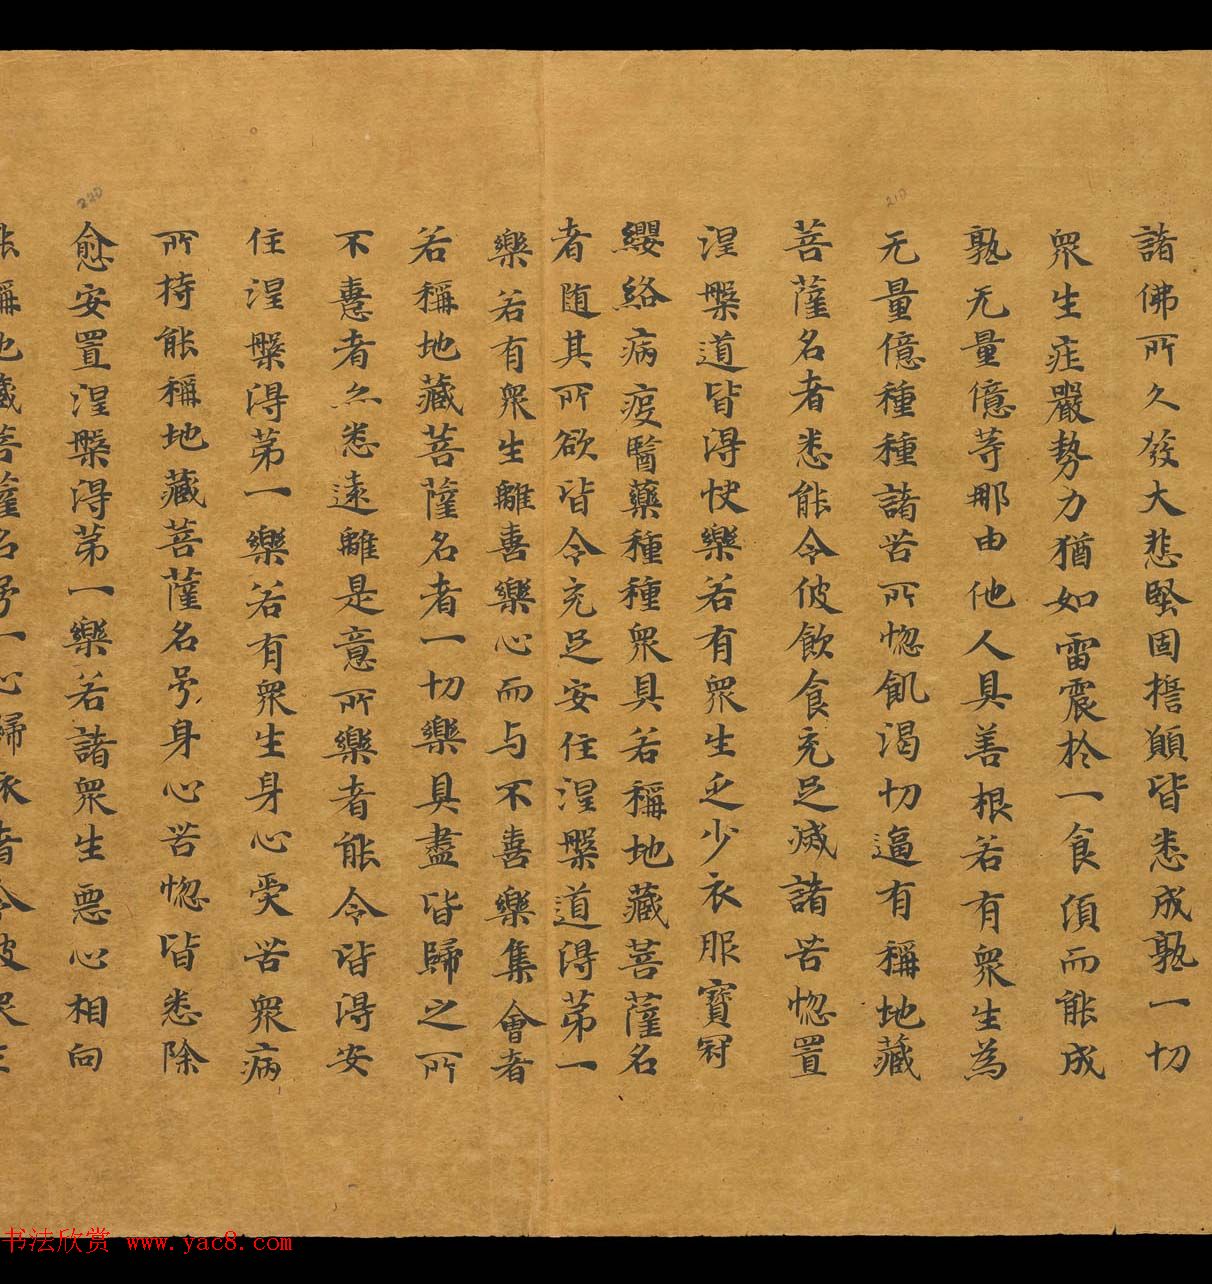 諸佛所久發大悲堅固擔願皆悉成熟一切
衆生庄嚴勢力猶如雷震於一食湏而能成
熟无量億等那由他人具善根若有衆生為
无量億種種諸苦所惚飢渴切逼有稱地藏
菩薩名者悉能令彼飲食充足滅諸苦惚置
涅槃道皆得快樂若有衆生乏少衣服寳冠
纓絡病疫醫藥種種衆具若稱地藏菩薩名
者随其所欲皆令充足安住涅槃道得苐一
樂若有衆生離喜樂心而与不喜樂集會者
若稱地藏菩薩名者一切樂具盡皆歸之所
不憙者亦悉遠離是意所樂者能令皆得安
住涅槃得苐一樂若有衆生身心受苦衆病
所持能稱地藏菩薩名号身心苦惚皆悉除
愈安置涅槃得苐一樂若諸衆生惡心相向
能稱地藏菩薩名号一心歸依者令彼衆生
210
220
书法欣赏 www.yac8.com